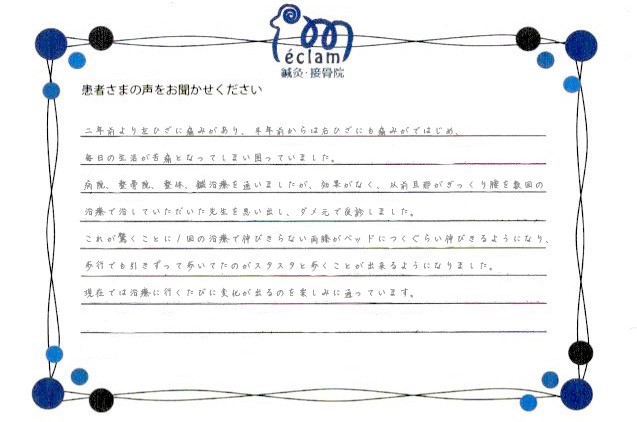 éclam
鍼灸・接骨院
患者さまの声をお聞かせください
二年前より左ひざに痛みがあり、半年前からは右ひざにも痛みがではじめ、
毎日の生活が苦痛となってしまい困っていました。
病院、整骨院、整体、鍼治療を通いましたが、効果がなく、以前旦那がぎっくり腰を数回の
治療で治していただいた先生を思い出し、ダメ元で受診しました。
これが驚くことに1回の治療で伸びきらない両膝がベッドにつくぐらい伸びきるようになり、
歩行でも引きずって歩いてたのがスタスタと歩くことが出来るようになりました。
現在では治療に行くたびに変化が出るのを楽しみに通っています。